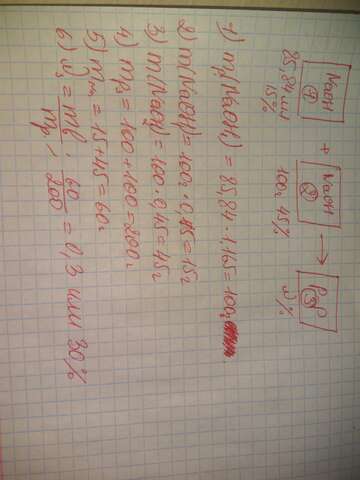 NaOH ① + NaOH ② → р-р ③
85,84 мл 15% 100г 45% ω%
1) mр(NaOH) = 85,84 · 1,165 = 100г
2) m(NaOH) = 100г · 0,15 = 15г
3) m(NaOH) = 100 · 0,45 = 45г
4) mр₃ = 100 + 100 = 200г
5) = 15 + 45 = 60г
6) ω₃ = mв/mр ; 60/200 = 0,3 или 30%